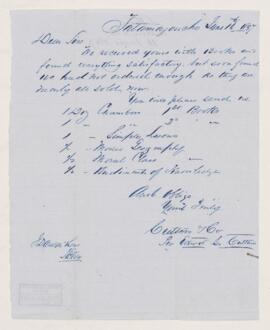 Tatamagouche June 18
Dear Sir
We received yours with Books and
found everything satisfactory, but soon found
we had not ordered enough as they are
nearly all sold now.
You will please send us
1 Doz Chambers 1st Books
1 " " 2d "
1 " Simple Lessons
½ " Modern Geography
½ " Moral Class "
½ " Rudiments of Knowledge
And Oblige
Yours Truly
Cutten & Co
Per Edward